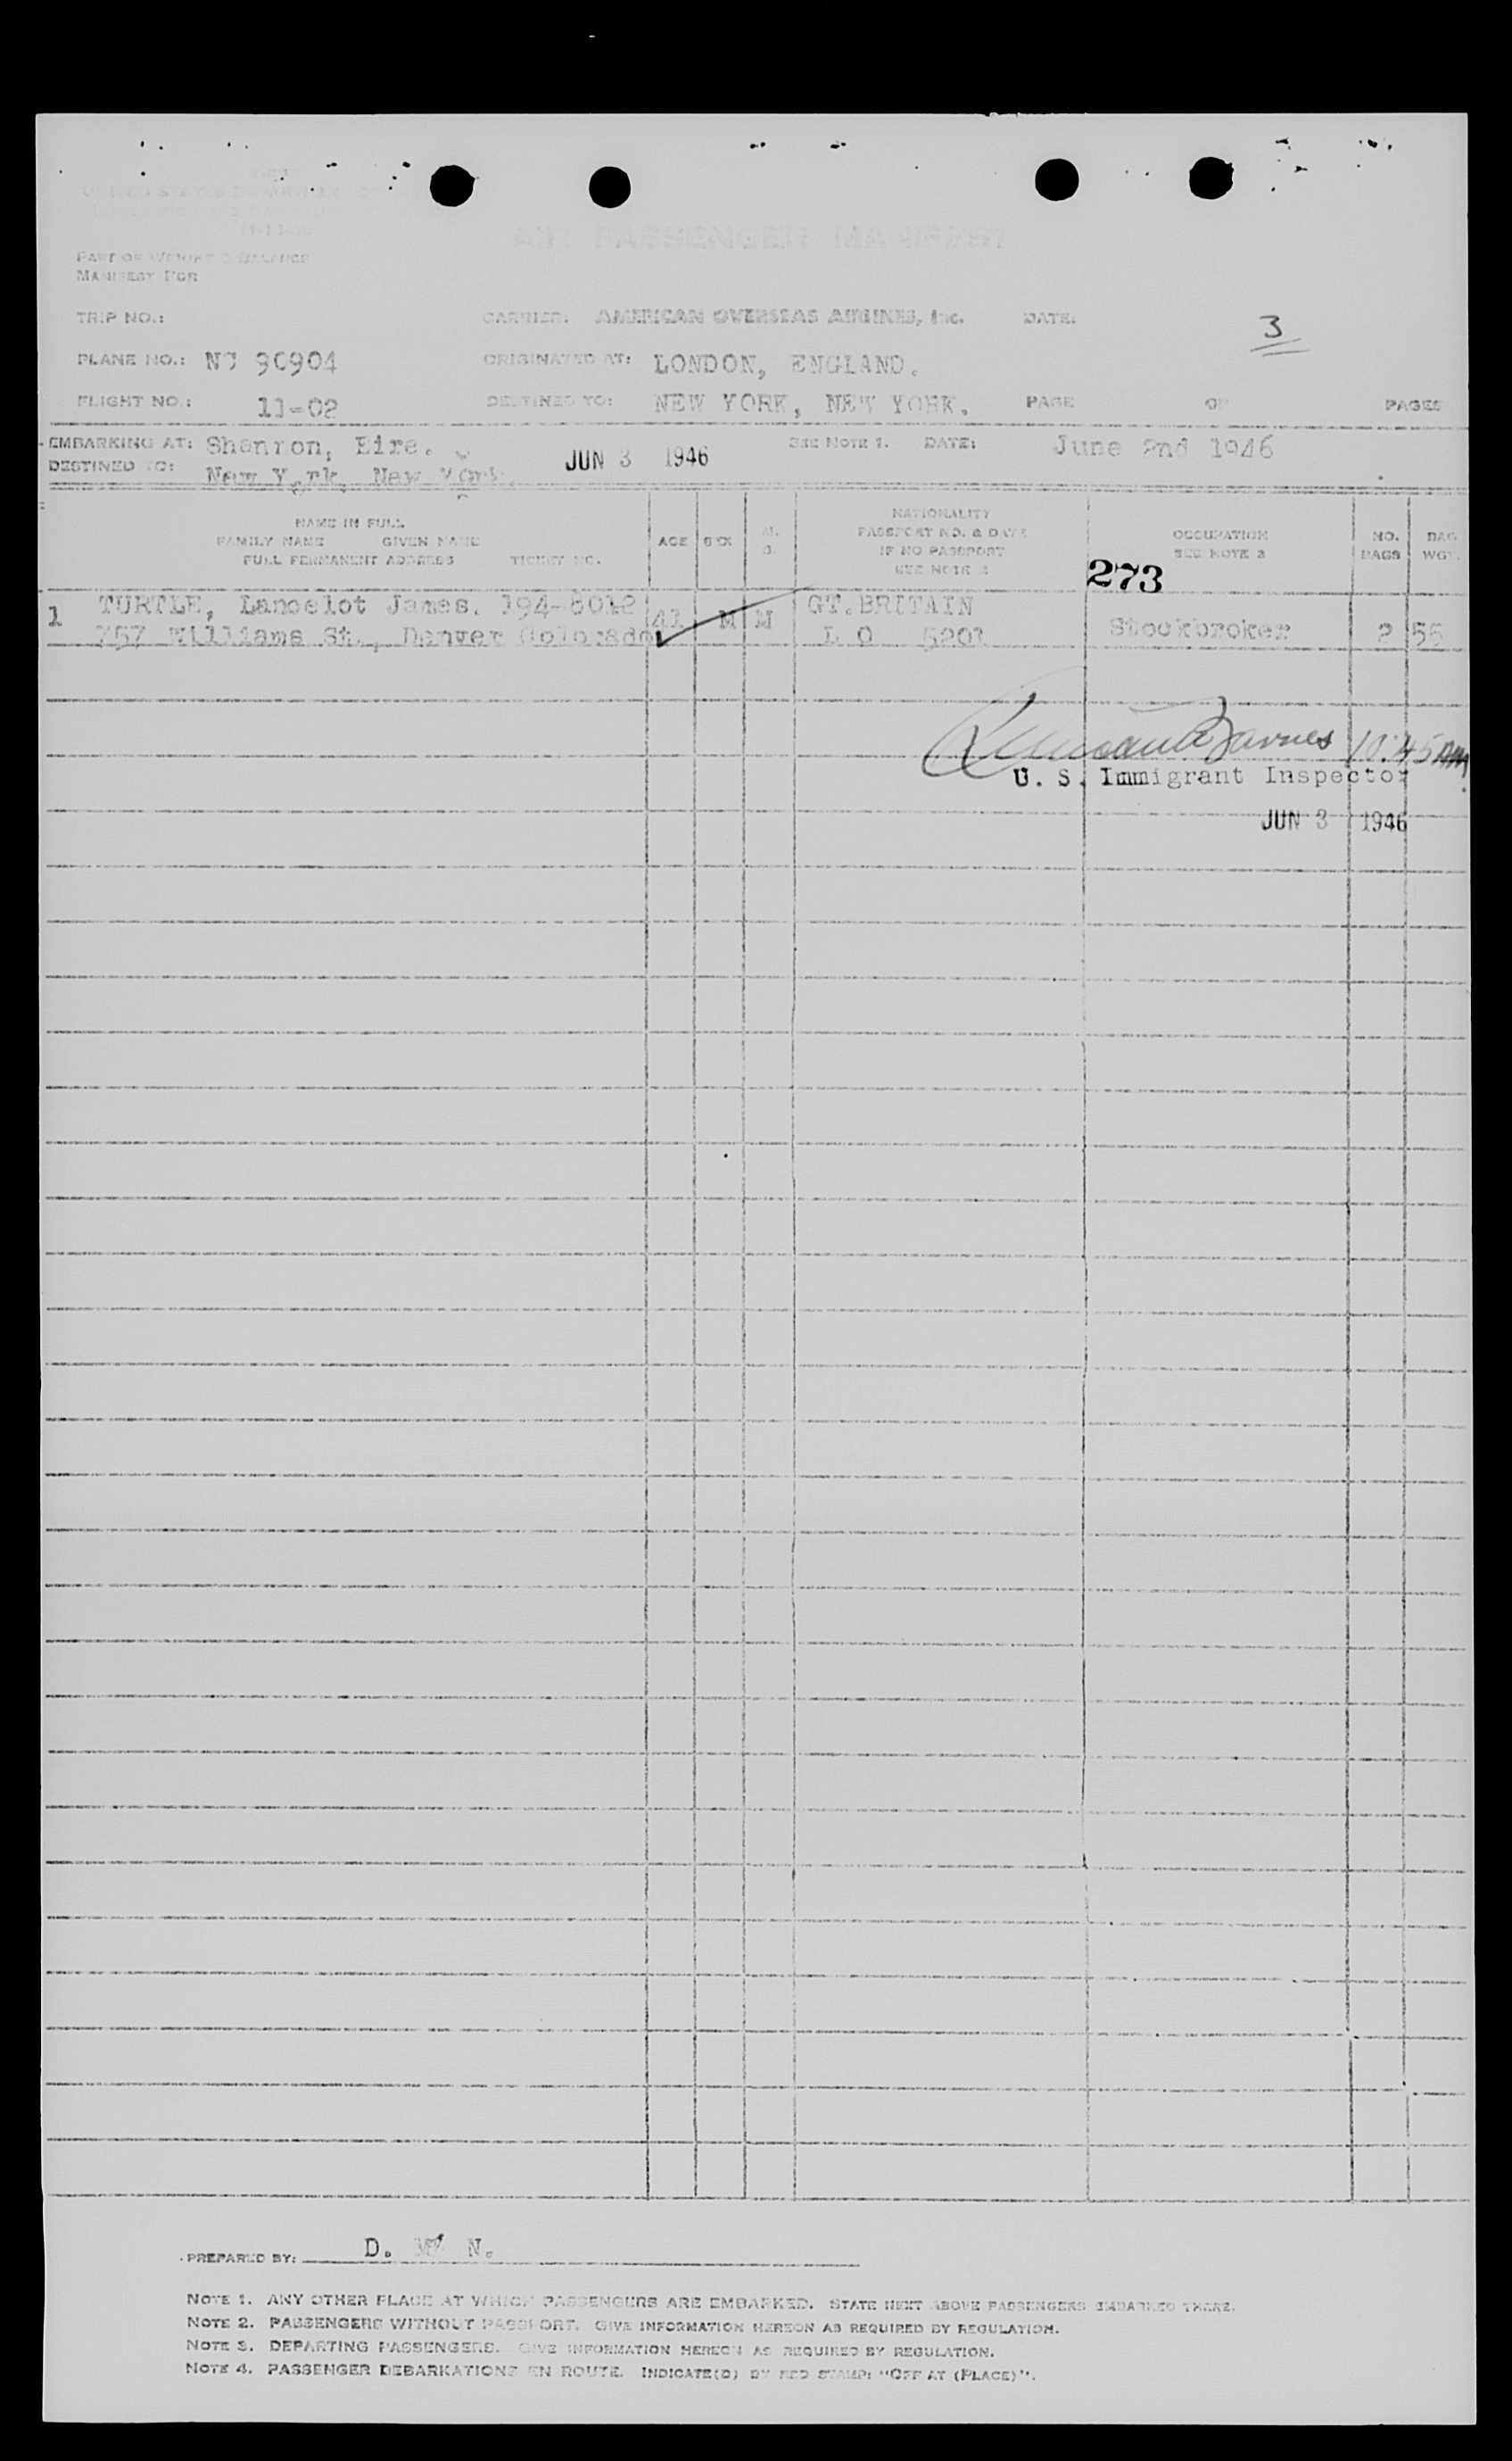 AIR PASSENGER MANIFEST
MANIFEST FOR
TRIP NO.: CARRIER: AMERICAN OVERSEAS AIRLINES, Inc. DATE: 3
PLANE NO.: NC 90904 ORIGINATED AT: LONDON, ENGLAND.
FLIGHT NO.: 11-02 DESTINED TO: NEW YORK, NEW YORK. PAGE OF PAGES
EMBARKING AT: Shannon, Eire. SEE NOTE 1. DATE: June 2nd 1946
DESTINED TO: New York, New York. JUN 3 1946
NAME IN FULL
FAMILY NAME GIVEN NAME
FULL PERMANENT ADDRESS TICKET NO.
AGE SEX
NATIONALITY
PASSPORT NO. & DATE
IF NO PASSPORT
SEE NOTE 2
OCCUPATION
SEE NOTE 3
NO.
BAGS
BAG
WGT.
273
1 TURTLE, Lancelot James. 194-6012 41 M M GT.BRITAIN
757 Williams St., Denver Colorado L O 5201 Stockbroker 2 55
Barnes 10:45 AM
U. S. Immigrant Inspector
JUN 3 1946
PREPARED BY: D. N.
NOTE 1. ANY OTHER PLACE AT WHICH PASSENGERS ARE EMBARKED. STATE NEXT ABOVE PASSENGERS EMBARKED THERE.
NOTE 2. PASSENGERS WITHOUT PASSPORT. GIVE INFORMATION HEREON AS REQUIRED BY REGULATION.
NOTE 3. DEPARTING PASSENGERS. GIVE INFORMATION HEREON AS REQUIRED BY REGULATION.
NOTE 4. PASSENGER DEBARKATIONS EN ROUTE. INDICATE(D) BY RED STAMP: "OFF AT (PLACE)".